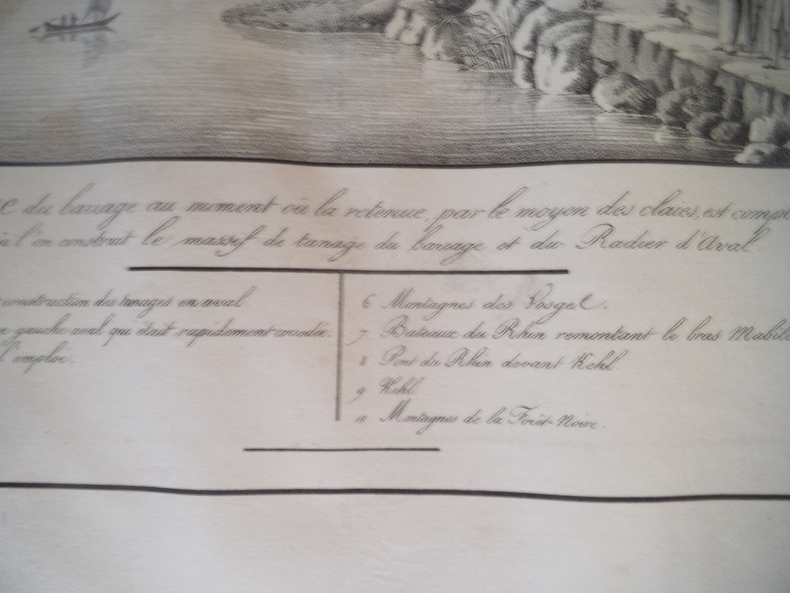 du barrage au moment où la retenue, par le moyen des claies, est
l'on construit le massif de tunage du barrage et du Radier d'Aval.
construction des tunages en aval.
gauche aval qui était rapidement corrodée.
l'emploi.
6 Montagnes des Vosges.
7 Bateaux du Rhin remontant le bras Mabile
8 Pont du Rhin devant Kehl.
9 Kehl.
10 Montagnes de la Forêt-Noire.